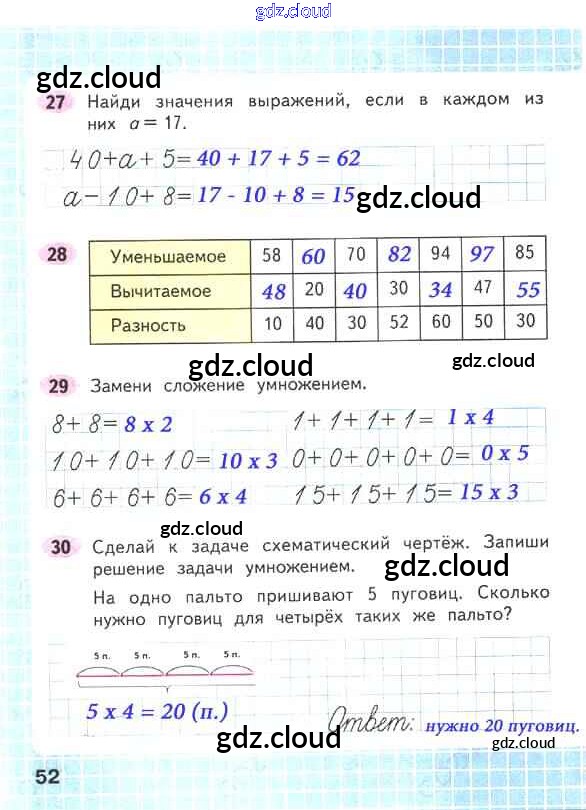 gdz.cloud
gdz.cloud
27 Найди значения выражений, если в каждом из
них a = 17.
40+a+5= 40 + 17 + 5 = 62
a-10+8= 17 - 10 + 8 = 15
gdz.cloud
28
Уменьшаемое 58 60 70 82 94 97 85
Вычитаемое 48 20 40 30 34 47 55
Разность 10 40 30 52 60 50 30
gdz.cloud
gdz.cloud
29 Замени сложение умножением.
8+8= 8 x 2 1+1+1+1= 1 x 4
10+10+10= 10 x 3 0+0+0+0+0= 0 x 5
6+6+6+6= 6 x 4 15+15+15= 15 x 3
gdz.cloud
30 Сделай к задаче схематический чертёж. Запиши
решение задачи умножением.
gdz.cloud
На одно пальто пришивают 5 пуговиц. Сколько
нужно пуговиц для четырёх таких же пальто?
5 п. 5 п. 5 п. 5 п.
5 x 4 = 20 (п.)
Ответ: нужно 20 пуговиц.
gdz.cloud
gdz.cloud
52